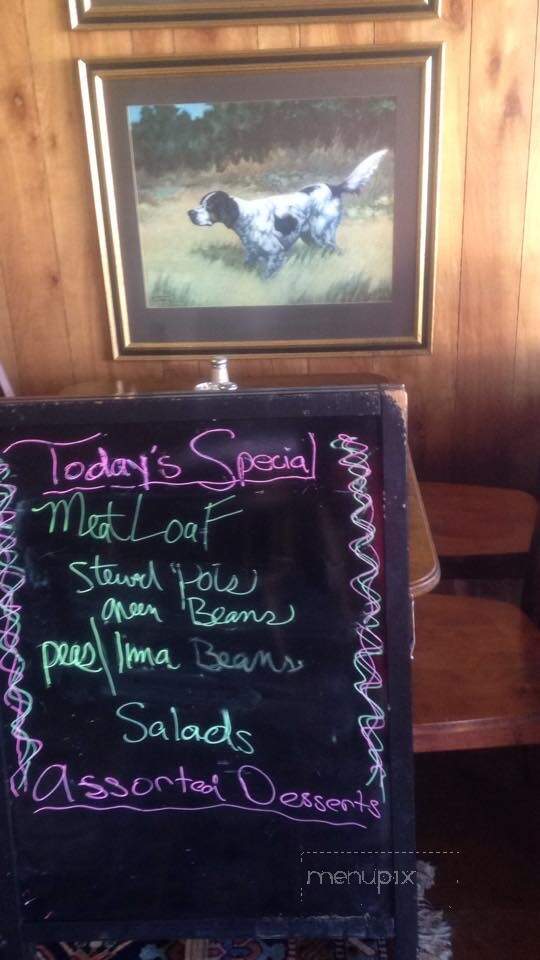 Today's Special
Meat Loaf
Stewed "Pots
green Beans
peas/lima Beans
Salads
Assorted Desserts
menupix